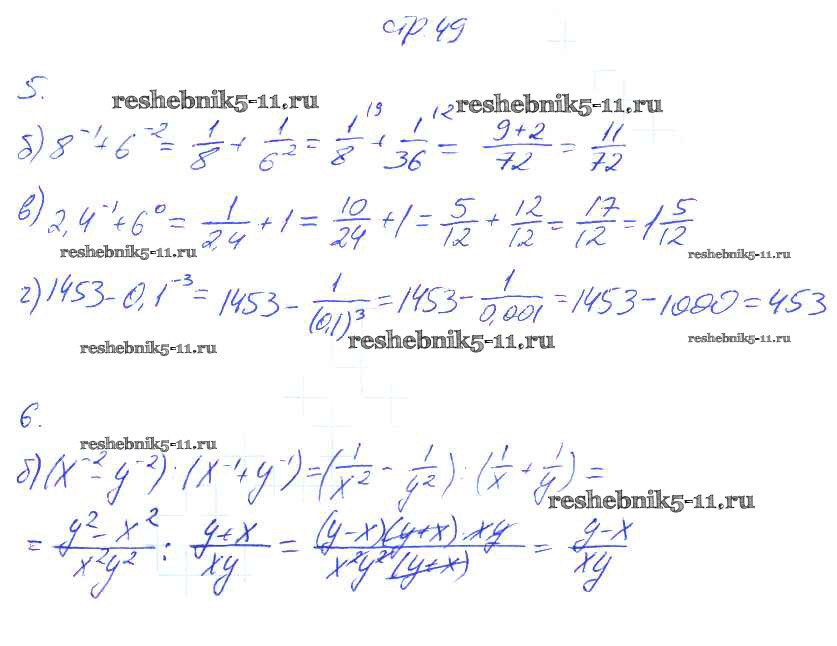 стр. 49
5.
reshebnik5-11.ru reshebnik5-11.ru
б) 8⁻¹ + 6⁻² = 1/8 + 1/6² = 1/8 |9 + 1/36 |2 = (9+2)/72 = 11/72
в) 2,4⁻¹ + 6⁰ = 1/2,4 + 1 = 10/24 + 1 = 5/12 + 12/12 = 17/12 = 1 5/12
reshebnik5-11.ru reshebnik5-11.ru
г) 1453 - 0,1⁻³ = 1453 - 1/(0,1)³ = 1453 - 1/0,001 = 1453 - 1000 = 453
reshebnik5-11.ru reshebnik5-11.ru reshebnik5-11.ru
6.
reshebnik5-11.ru
б) (x⁻² - y⁻²) : (x⁻¹ + y⁻¹) = (1/x² - 1/y²) : (1/x + 1/y) =
reshebnik5-11.ru
= (y² - x²)/(x²y²) : (y+x)/(xy) = ((y-x)(y+x)·xy)/(x²y²(y+x)) = (y-x)/(xy)